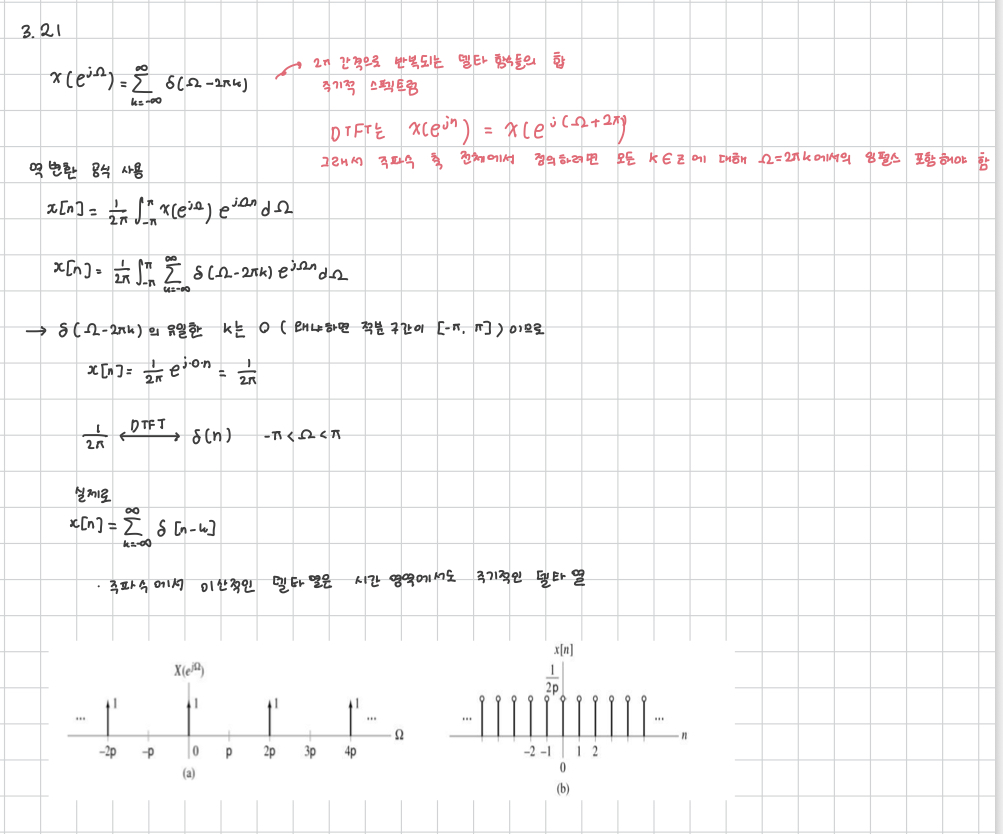 3.21
x(e^{jΩ}) = ∑_{k=-∞}^{∞} δ(Ω-2πk)
2π 간격으로 반복되는 델타 함수들의 합
주기적 스펙트럼
DTFT는 x(e^{jΩ}) = x(e^{j(Ω+2π)}
그래서 주파수 축 전체에서 정의하려면 모든 k∈Z에 대해 Ω=2πk에서의 임펄스 포함해야 함
역 변환 공식 사용
x[n] = \frac{1}{2π} ∫_{-π}^{π} x(e^{jΩ}) e^{jΩn} dΩ
x[n] = \frac{1}{2π} ∫_{-π}^{π} ∑_{k=-∞}^{∞} δ(Ω-2πk) e^{jΩn} dΩ
→ δ(Ω-2πk)의 유일한 k는 0 (왜냐하면 적분 구간이 [-π, π])이므로
x[n] = \frac{1}{2π} e^{j·0·n} = \frac{1}{2π}
\frac{1}{2π} ⟷^{DTFT} δ(n) -π<Ω<π
실제로
x[n] = ∑_{k=-∞}^{∞} δ[n-k]
· 주파수에서 이산적인 델타 열은 시간 영역에서도 주기적인 델타 열
X(e^{jΩ})
1 1 1 1
... ... Ω
-2p -p 0 p 2p 3p 4p
(a)
x[n]
\frac{1}{2p}
... ... n
-2 -1 1 2
0
(b)